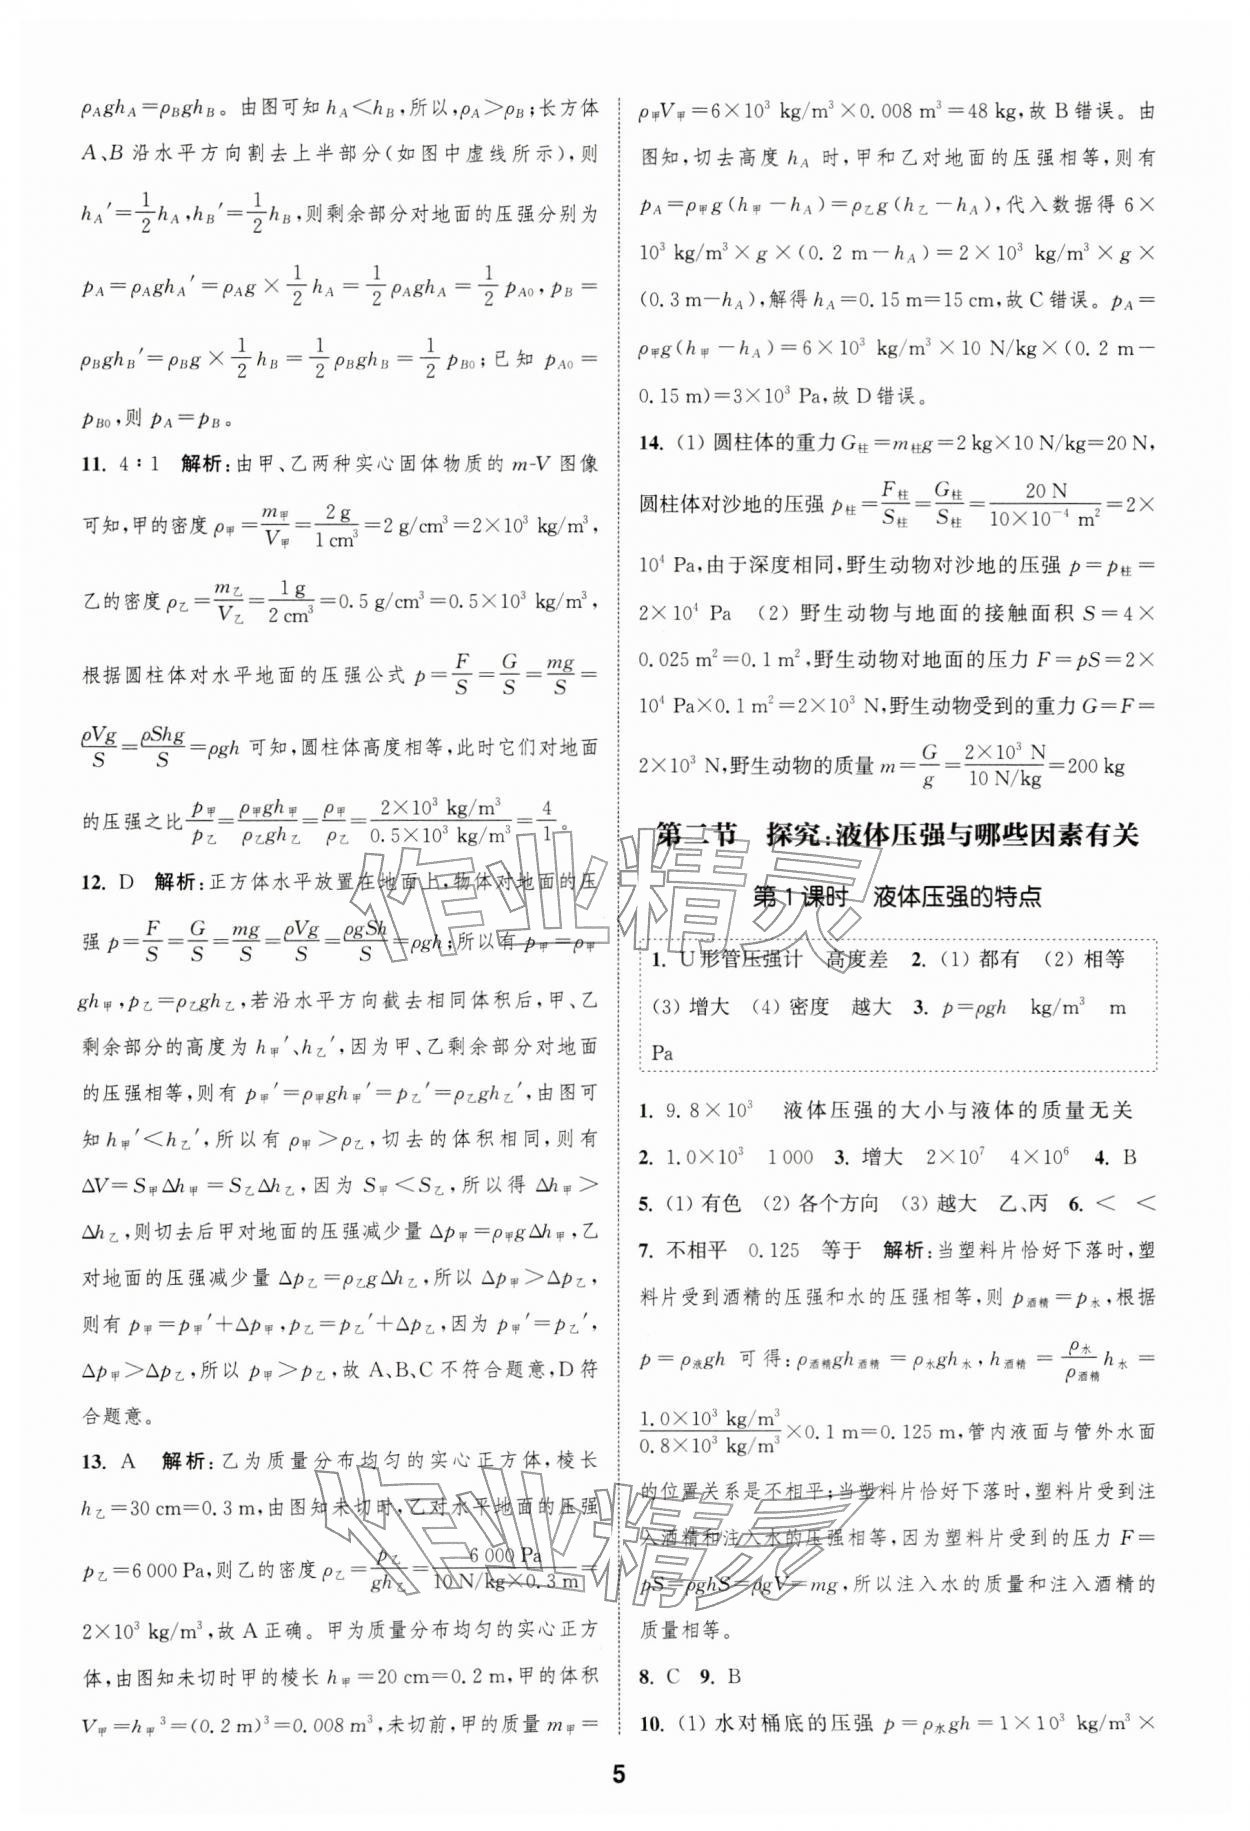 ρ_A gh_A＝ρ_B gh_B。由图可知 h_A＜h_B，所以，ρ_A＞ρ_B；长方体
A、B 沿水平方向割去上半部分（如图中虚线所示），则
h_A′＝1/2 h_A，h_B′＝1/2 h_B，则剩余部分对地面的压强分别为
p_A＝ρ_A gh_A′＝ρ_A g×1/2 h_A＝1/2 ρ_A gh_A＝1/2 p_A0，p_B＝
ρ_B gh_B′＝ρ_B g×1/2 h_B＝1/2 ρ_B gh_B＝1/2 p_B0；已知 p_A0＝
p_B0，则 p_A＝p_B。
11. 4∶1 解析：由甲、乙两种实心固体物质的 m-V 图像
可知，甲的密度 ρ甲＝m甲/V甲＝2 g/1 cm³＝2 g/cm³＝2×10³ kg/m³，
乙的密度 ρ乙＝m乙/V乙＝1 g/2 cm³＝0.5 g/cm³＝0.5×10³ kg/m³，
根据圆柱体对水平地面的压强公式 p＝F/S＝G/S＝mg/S＝
ρVg/S＝ρShg/S＝ρgh 可知，圆柱体高度相等，此时它们对地面
的压强之比 p甲/p乙＝ρ甲gh甲/ρ乙gh乙＝ρ甲/ρ乙＝2×10³ kg/m³/0.5×10³ kg/m³＝4/1。
12. D 解析：正方体水平放置在地面上，物体对地面的压
强 p＝F/S＝G/S＝mg/S＝ρVg/S＝ρgSh/S＝ρgh；所以有 p甲＝ρ甲
gh甲，p乙＝ρ乙gh乙，若沿水平方向截去相同体积后，甲、乙
剩余部分的高度为 h甲′、h乙′，因为甲、乙剩余部分对地面
的压强相等，则有 p甲′＝ρ甲gh甲′＝p乙′＝ρ乙gh乙′，由图可
知 h甲′＜h乙′，所以有 ρ甲＞ρ乙，切去的体积相同，则有
ΔV＝S甲Δh甲＝S乙Δh乙，因为 S甲＜S乙，所以得 Δh甲＞
Δh乙，则切去后甲对地面的压强减少量 Δp甲＝ρ甲gΔh甲，乙
对地面的压强减少量 Δp乙＝ρ乙gΔh乙，所以 Δp甲＞Δp乙，
则有 p甲＝p甲′＋Δp甲，p乙＝p乙′＋Δp乙，因为 p甲′＝p乙′，
Δp甲＞Δp乙，所以 p甲＞p乙，故 A、B、C 不符合题意，D 符
合题意。
13. A 解析：乙为质量分布均匀的实心正方体，棱长
h乙＝30 cm＝0.3 m，由图知未切时，乙对水平地面的压强
p乙＝6 000 Pa，则乙的密度 ρ乙＝p乙/gh乙＝6 000 Pa/10 N/kg×0.3 m＝
2×10³ kg/m³，故 A 正确。甲为质量分布均匀的实心正方
体，由图知未切时甲的棱长 h甲＝20 cm＝0.2 m，甲的体积
V甲＝h甲³＝(0.2 m)³＝0.008 m³，未切前，甲的质量 m甲＝
ρ甲V甲＝6×10³ kg/m³×0.008 m³＝48 kg，故 B 错误。由
图知，切去高度 h_A 时，甲和乙对地面的压强相等，则有
p_A＝ρ甲g(h甲－h_A)＝ρ乙g(h乙－h_A)，代入数据得 6×
10³ kg/m³×g×(0.2 m－h_A)＝2×10³ kg/m³×g×
(0.3 m－h_A)，解得 h_A＝0.15 m＝15 cm，故 C 错误。p_A＝
ρ甲g(h甲－h_A)＝6×10³ kg/m³×10 N/kg×(0.2 m－
0.15 m)＝3×10³ Pa，故 D 错误。
14. (1) 圆柱体的重力 G柱＝m柱g＝2 kg×10 N/kg＝20 N，
圆柱体对沙地的压强 p柱＝F柱/S柱＝G柱/S柱＝20 N/10×10⁻⁴ m²＝2×
10⁴ Pa，由于深度相同，野生动物对沙地的压强 p＝p柱＝
2×10⁴ Pa (2) 野生动物与地面的接触面积 S＝4×
0.025 m²＝0.1 m²，野生动物对地面的压力 F＝pS＝2×
10⁴ Pa×0.1 m²＝2×10³ N，野生动物受到的重力 G＝F＝
2×10³ N，野生动物的质量 m＝G/g＝2×10³ N/10 N/kg＝200 kg
第二节 探究：液体压强与哪些因素有关
第 1 课时 液体压强的特点
1. U 形管压强计 高度差 2. (1) 都有 (2) 相等
(3) 增大 (4) 密度 越大 3. p＝ρgh kg/m³ m
Pa
1. 9.8×10³ 液体压强的大小与液体的质量无关
2. 1.0×10³ 1 000 3. 增大 2×10⁷ 4×10⁶ 4. B
5. (1) 有色 (2) 各个方向 (3) 越大 乙、丙 6. ＜ ＜
7. 不相平 0.125 等于 解析：当塑料片恰好下落时，塑
料片受到酒精的压强和水的压强相等，则 p酒精＝p水，根据
p＝ρ液gh 可得：ρ酒精gh酒精＝ρ水gh水，h酒精＝ρ水/ρ酒精 h水＝
1.0×10³ kg/m³/0.8×10³ kg/m³×0.1 m＝0.125 m，管内液面与管外水面
的位置关系是不相平；当塑料片恰好下落时，塑料片受到注
入酒精和注入水的压强相等，因为塑料片受到的压力 F＝
pS＝ρghS＝ρgV＝mg，所以注入水的质量和注入酒精的
质量相等。
8. C 9. B
10. (1) 水对桶底的压强 p＝ρ水gh＝1×10³ kg/m³×
5
作业精灵
作业精灵